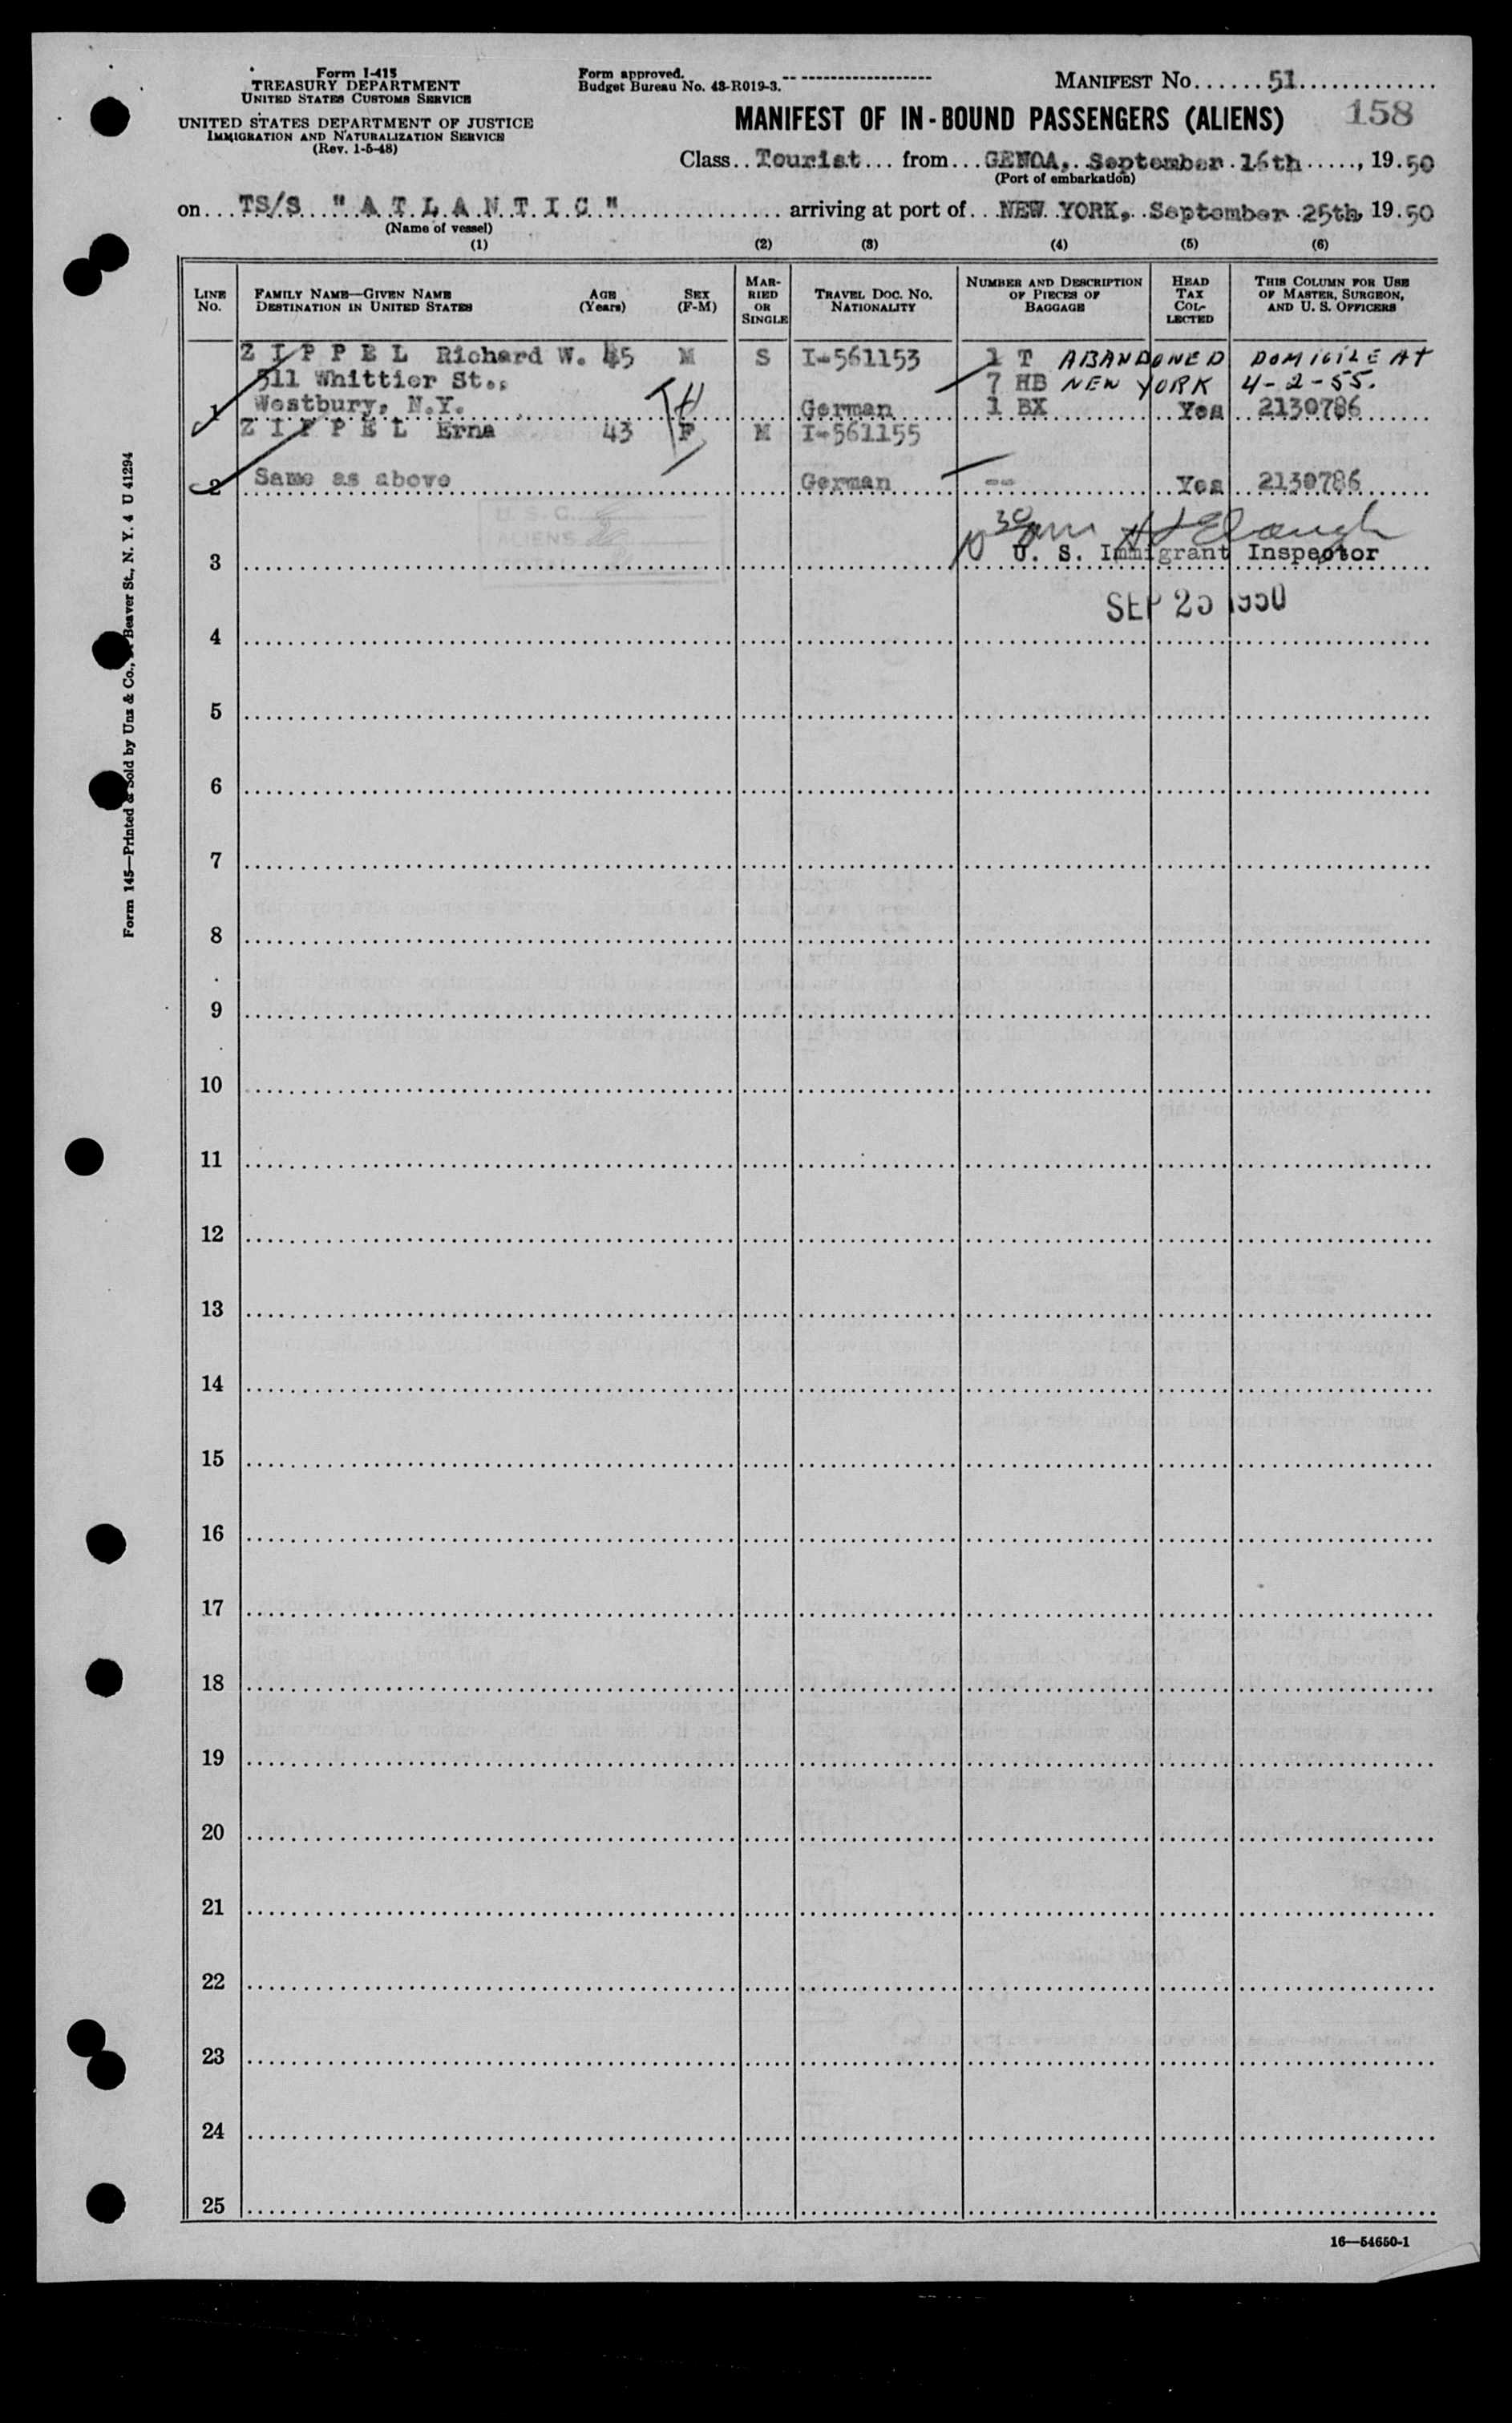 Form I-415
TREASURY DEPARTMENT
UNITED STATES CUSTOMS SERVICE
UNITED STATES DEPARTMENT OF JUSTICE
IMMIGRATION AND NATURALIZATION SERVICE
(Rev. 1-5-48)
Form approved.
Budget Bureau No. 43-R019-3.
MANIFEST NO. 51
MANIFEST OF IN-BOUND PASSENGERS (ALIENS) 158
Class Tourist from GENOA, September 16th, 19 50
(Port of embarkation)
on TS/S "A T L A N T I C" arriving at port of NEW YORK, September 25th, 19 50
(Name of vessel)
(1) (2) (3) (4) (5) (6)
LINE NO.
FAMILY NAME—GIVEN NAME
DESTINATION IN UNITED STATES
AGE (Years)
SEX (F-M)
MARRIED OR SINGLE
TRAVEL DOC. NO.
NATIONALITY
NUMBER AND DESCRIPTION OF PIECES OF BAGGAGE
HEAD TAX COLLECTED
THIS COLUMN FOR USE OF MASTER, SURGEON, AND U. S. OFFICERS
Z I P P E L Richard W. 45 M S I-561153 1 T ABANDONED DOMICILE AT
511 Whittier St., 7 HB NEW YORK 4-2-55.
1 Westbury, N.Y. German 1 BX Yes 2130786
Z I P P E L Erna 43 F M I-561155
2 Same as above German -- Yes 2130786
U. S. C.
ALIENS
3 U. S. Immigrant Inspector
SEP 25 1950
4
5
6
7
8
9
10
11
12
13
14
15
16
17
18
19
20
21
22
23
24
25
16—54650-1
Form 145—Printed & Sold by Unz & Co., Beaver St., N. Y. 4 U 41294